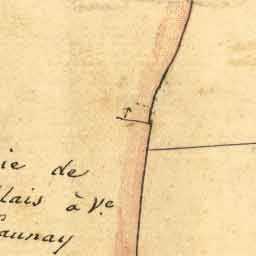 ie de
llais à Ve
aunay